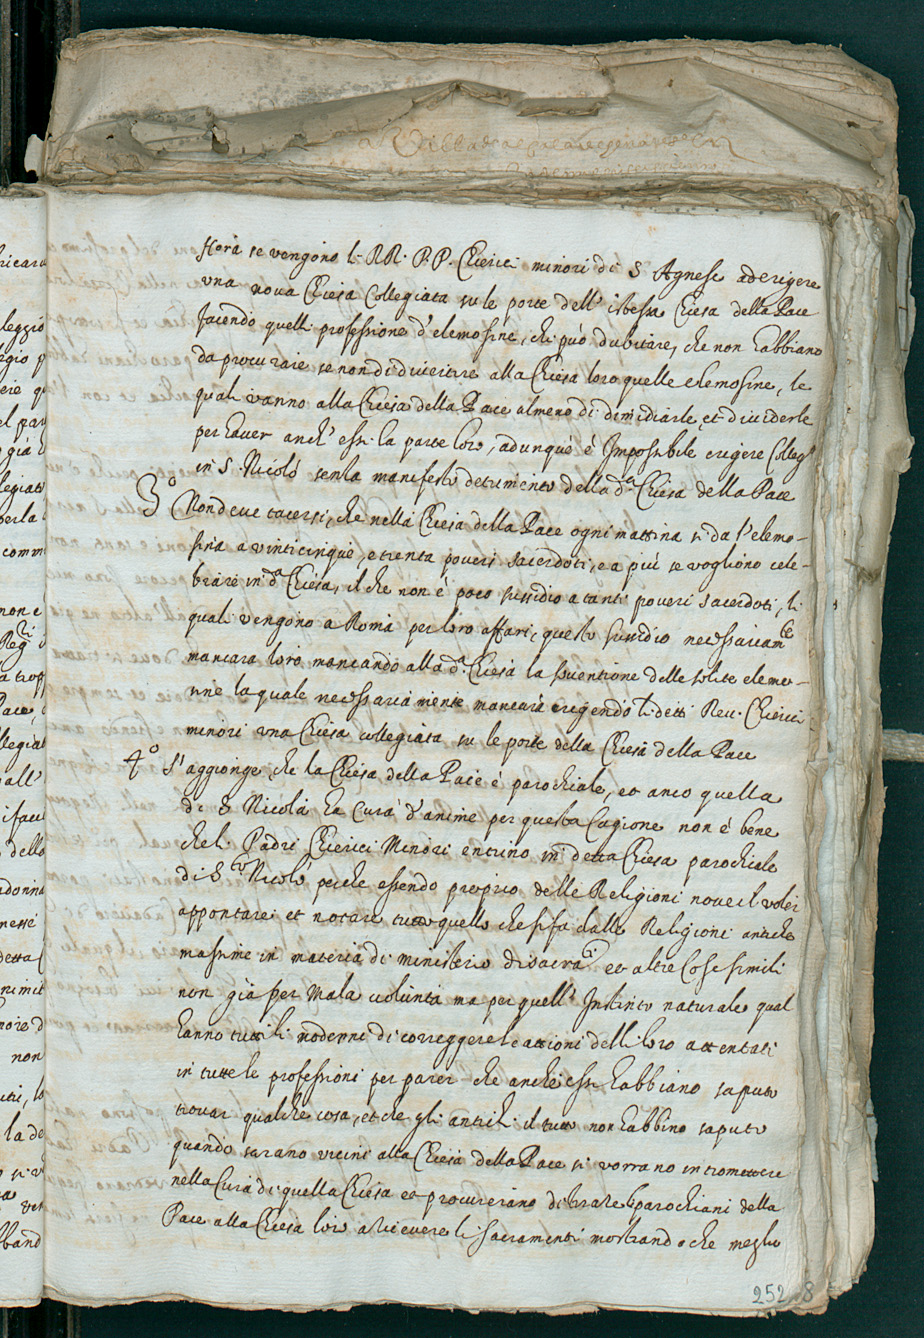 Hora se vengono li RR. P.P. Chierici minori di S Agnese ad erigere
una nova Chiesa Collegiata su le porte dell' istessa Chiesa della Pace
facendo quelli professione d'elemosine, chi può dubitare, che non habbiano
da procurare se non di divertire alla Chiesa loro quelle elemosine, le
quali vanno alla Chiesa della Pace almeno di dimidiarle, et dividerle
per haver anch' essi la parte loro, adunque é Impossibile erigere Colleg.º
in S. Nicolò senza manifesto detrimento della d.ª Chiesa della Pace
3º Non deve tacersi, che nella Chiesa della Pace ogni mattina si da l'elemo-
sina a vinticinque, e trenta poveri sacerdoti, e a più se vogliono cele-
brare in d.ª Chiesa, il che non é poco sussidio a tanti poveri sacerdoti, li
quali vengono a Roma per loro affari, questo sussidio necessariam.te
mancara loro mancando alla d.ª Chiesa la sventione delle solite elemo-
sine la quale necessariamente mancarà erigendo li detti Rev. Chierici
minori una Chiesa collegiata su le porte della Chiesa della Pace
4º S'aggionge che la Chiesa della Pace é parochiale, et anco quella
di S Nicola ha Cura d'anime per questa Cagione non é bene
che li Padri Chierici Minori entrino in detta Chiesa parochiale
di S.to Nicolò perche essendo proprio delle Religioni nove il voler
appontare et notare tutto quello che si fa dalle Religioni antiche
massime in materia di ministerio di sacra.ti et altre Cose simili
non già per mala volunta ma per quell' Instinto naturale qual
hanno tutti li moderni di correggere le attioni delli loro attentati
in tutte le professioni per parer che anche essi habbiano saputo
trovar qualche cosa, et che gli antichi il tutto non habbino saputo
quando sarano vicini alla Chiesa della Pace si vorrano intromettere
nella Cura di quella Chiesa et procurerano di tirare li parochiani della
Pace alla Chiesa loro a ricevere li sacramenti mostrando che meglio
252 8